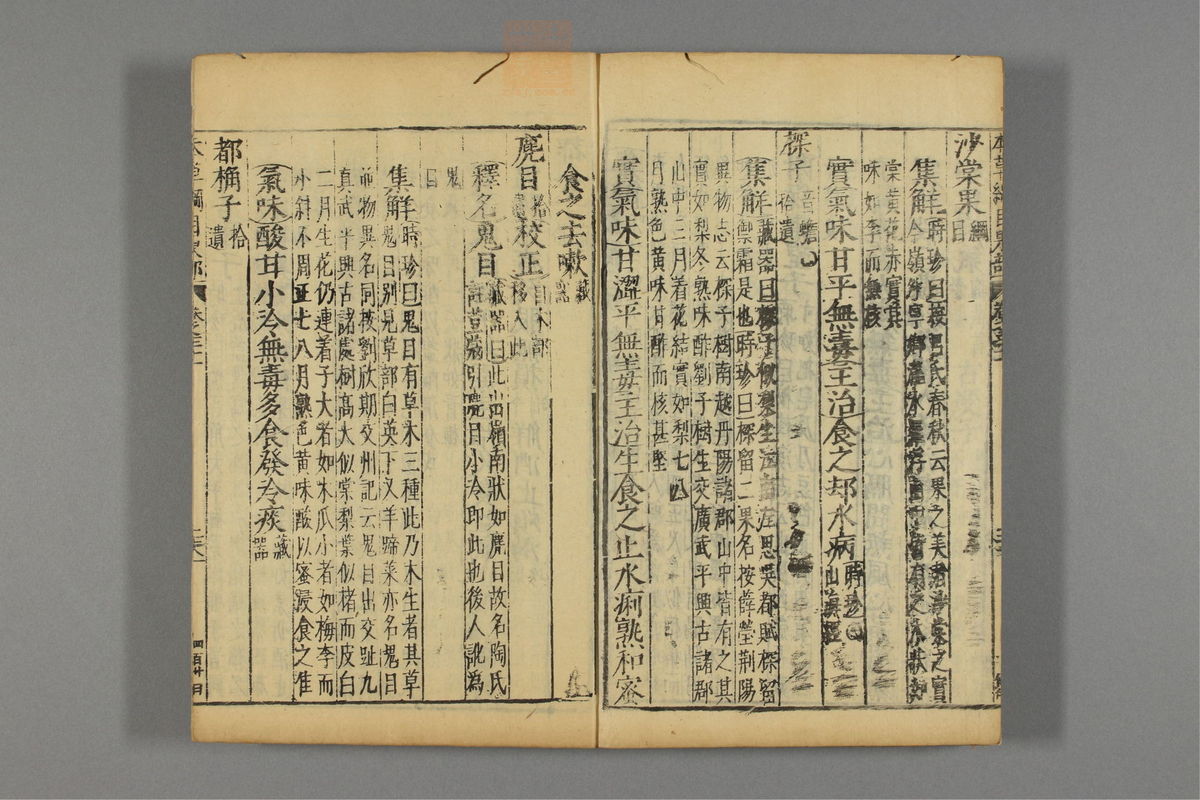 沙棠果綱目
集解時珍曰按呂氏春秋云果之美者沙棠之實
今嶺外寧鄉瀧水
棠黃花赤實其
味如李而無核
實氣味甘平無毒主治食之却水病時珍
㮏子音蟾拾遺
集解藏器曰㮏子似梨生江南左思吳都賦㮏留
禦霜是也時珍曰㮏留二果名按薛瑩荆陽
異物志云㮏子樹南越丹陽諸郡山中皆有之其
實如梨冬熟味酢劉子樹生交廣武平興古諸郡
山中三月着花結實如梨七八
月熟色黃味甘酢而核甚堅
實氣味甘澀平無毒主治生食之止水痢熟和蜜
食之去嗽藏器
麂目拾遺校正自木部移入此
釋名鬼目藏器曰此出嶺南狀如麂目故名陶氏
註豆蔻引麂目小冷即此也後人訛為
鬼目
集解時珍曰鬼目有草木三種此乃木生者其草
鬼目别見草部白英下又羊蹄菜亦名鬼目
並物異名同按劉欣期交州記云鬼目出交趾九
真武平興古諸處樹高大似棠梨葉似楮而皮白
二月生花仍連着子大者如木瓜小者如梅李而
小斜不周正七八月熟色黃味酸以蜜浸食之佳
氣味酸甘小冷無毒多食發冷痰藏器
都桷子拾遺